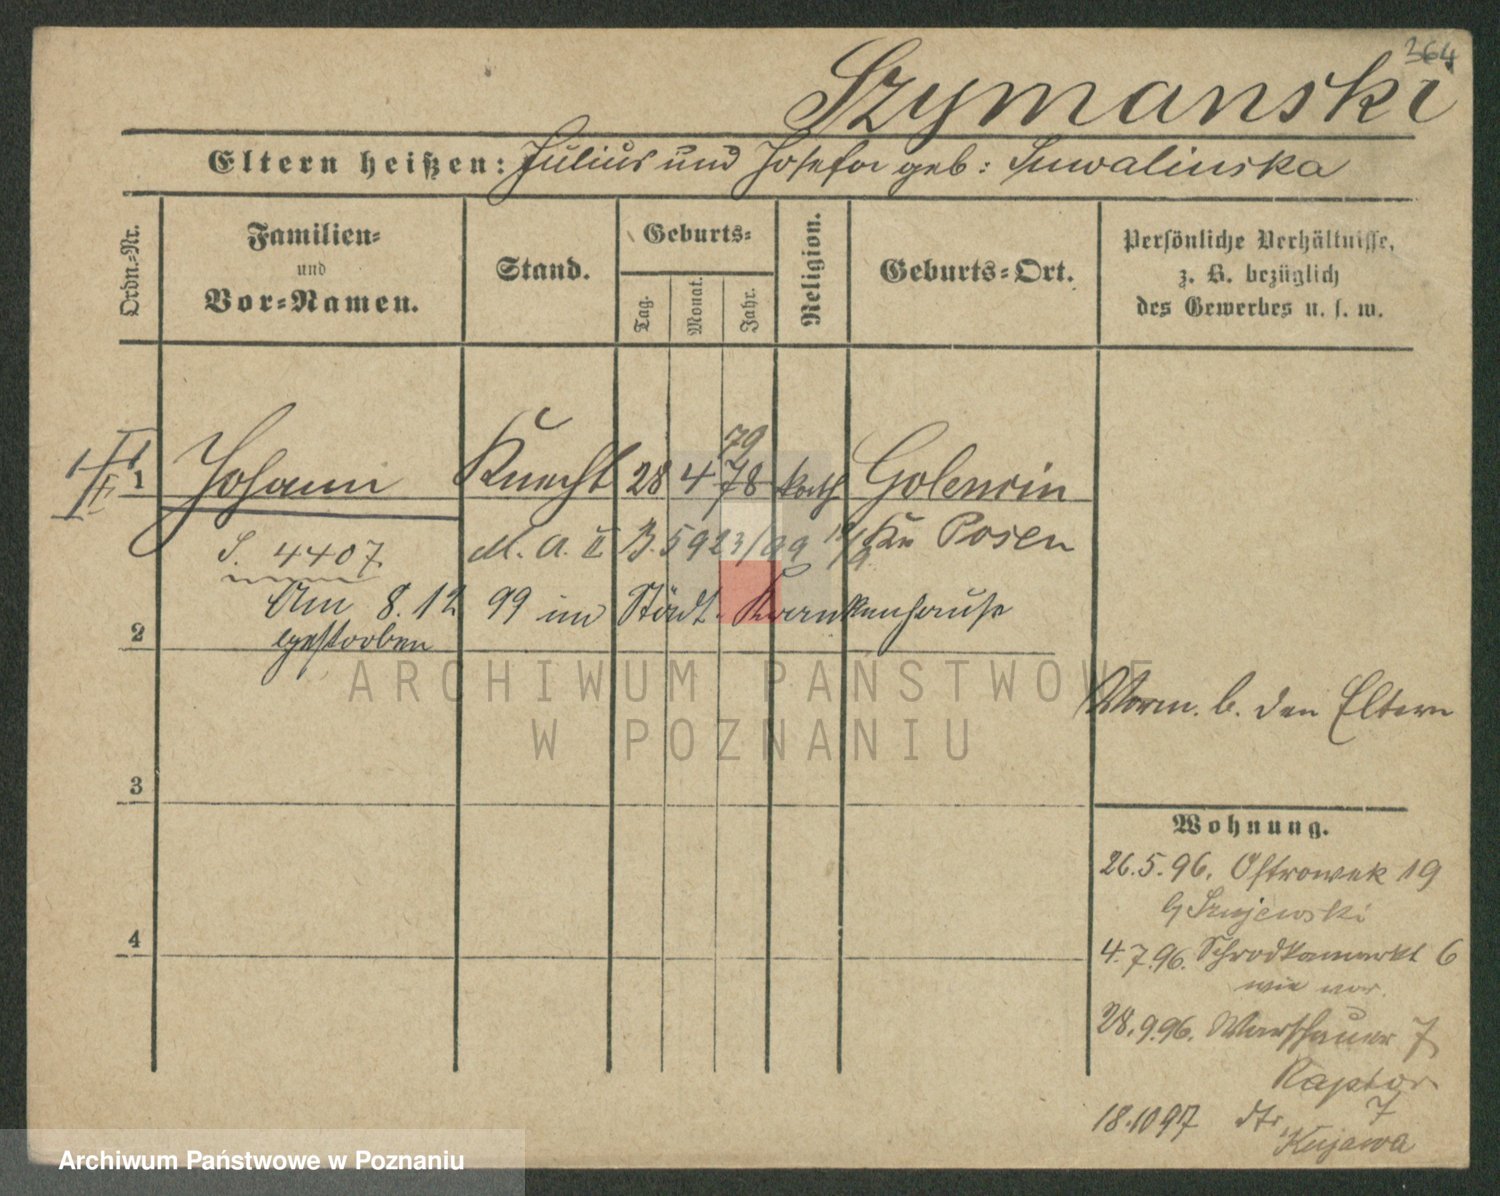 364
Szymanski
Eltern heißen: Julius und Josefa geb: Suwalinska
Ordn.-Nr.
Familien-
und
Vor-Namen.
Stand.
Geburts-
Tag.
Monat.
Jahr.
Religion.
Geburts-Ort.
Persönliche Verhältnisse,
z. B. bezüglich
des Gewerbes u. s. w.
79
1 Johann Knecht 28 4 78 kath Golencin
S. 4407 M. A. II B. 5923/99 Kr Posen
Am 8.12 99 im Städt. Krankenhause
2 gestorben
ARCHIWUM PAŃSTWOWE
W POZNANIU
Vorm. b. den Eltern
3
Wohnung.
26.5.96. Ostrowek 19
b Szujewski
4
4.7.96. Schrodkamarkt 6
wie vor.
28.9.96. Warschauer 7
Raptor
18.10 97 dto 7
Kujawa
Archiwum Państwowe w Poznaniu